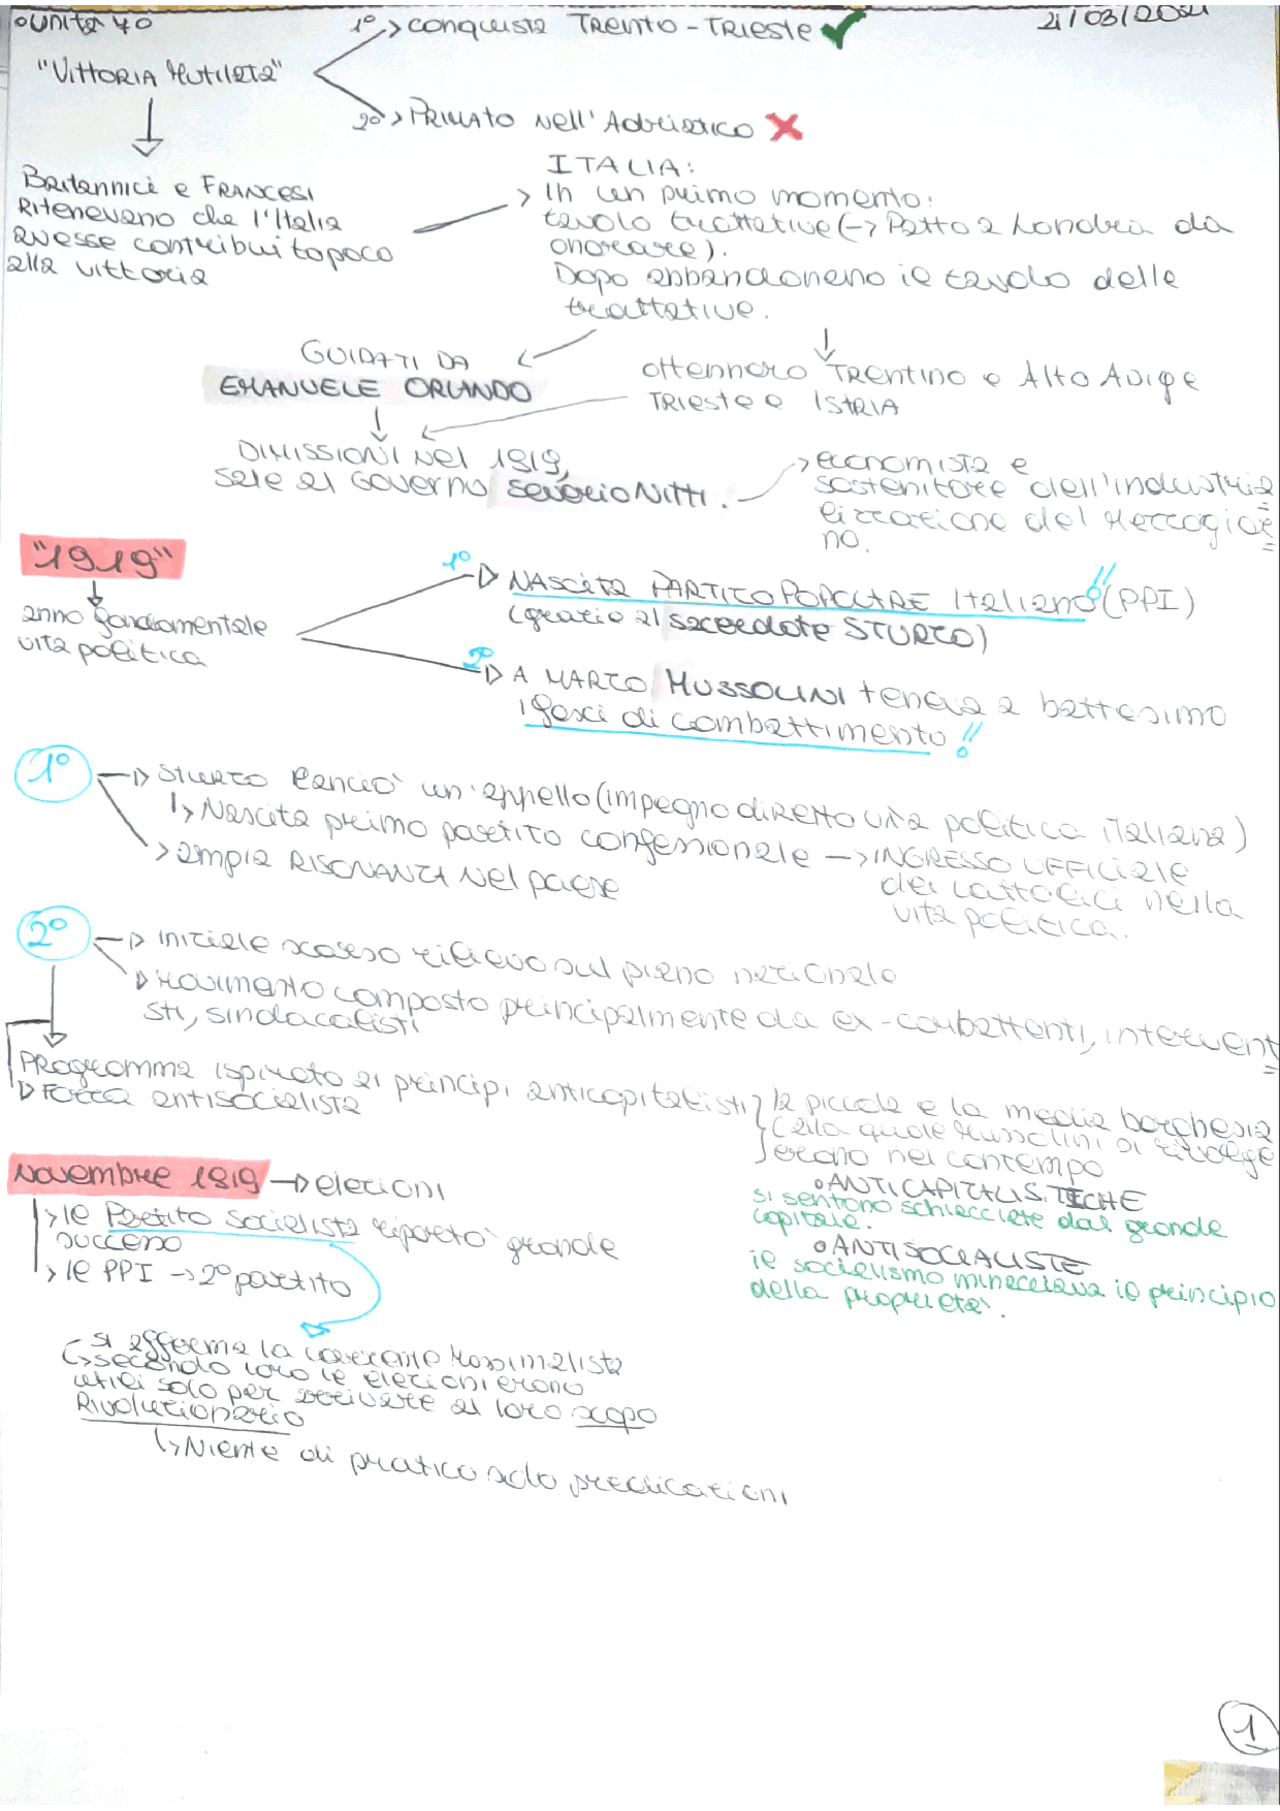 °Unità 40
1° > conquista TRENTO - TRIESTE ✔
"VITTORIA MUTILATA"
2° > PRIMATO Nell'Adriatico ✗
Britannici e FRANCESI
Ritenevano che l'Italia
avesse contribuito poco
alla vittoria
ITALIA:
> In un primo momento:
tavolo trattative (-> Patto a Londra da
onorare).
Dopo abbandonano il tavolo delle
trattative.
GUIDATI DA
EMANUELE ORLANDO
ottennero TRENTINO e Alto Adige
TRIESTE e ISTRIA
DIMISSIONI Nel 1919,
sale al Governo Saverio Nitti.
> economista e
sostenitore dell'industria=
lizzazione del Mezzogior=
no.
"1919"
anno fondamentale
vita politica
1° -> NASCITA PARTITO POPOLARE Italiano!! (PPI)
(grazie al sacerdote STURZO)
2° -> A MARZO MUSSOLINI teneva a battesimo
i fasci di combattimento!!
1° -> STURZO lanciò un appello (impegno diretto vita politica italiana)
↳ Nascita primo partito confessionale -> INGRESSO UFFICIALE
dei cattolici nella
vita politica.
> ampia RISONANZA Nel paese
2° -> Iniziale scarso rilievo sul piano nazionale
-> Movimento composto principalmente da ex-combattenti, intervent=
sti, sindacalisti
Programma ispirato ai principi anticapitalisti
-> Forza antisocialista
la piccola e la media borghesia
(alla quale Mussolini si rivolge
erano nel contempo
°ANTICAPITALISTICHE
si sentono schiacciate dal grande
capitale.
°ANTISOCIALISTE
il socialismo minacciava il principio
della proprietà.
Novembre 1919 -> elezioni
> Il Partito Socialista riportò grande
successo
> Il PPI -> 2° partito
si afferma la corrente Massimalista
↳ secondo loro le elezioni erano
utili solo per arrivare al loro scopo
Rivoluzionario
↳ Niente di pratico solo predicazioni
1